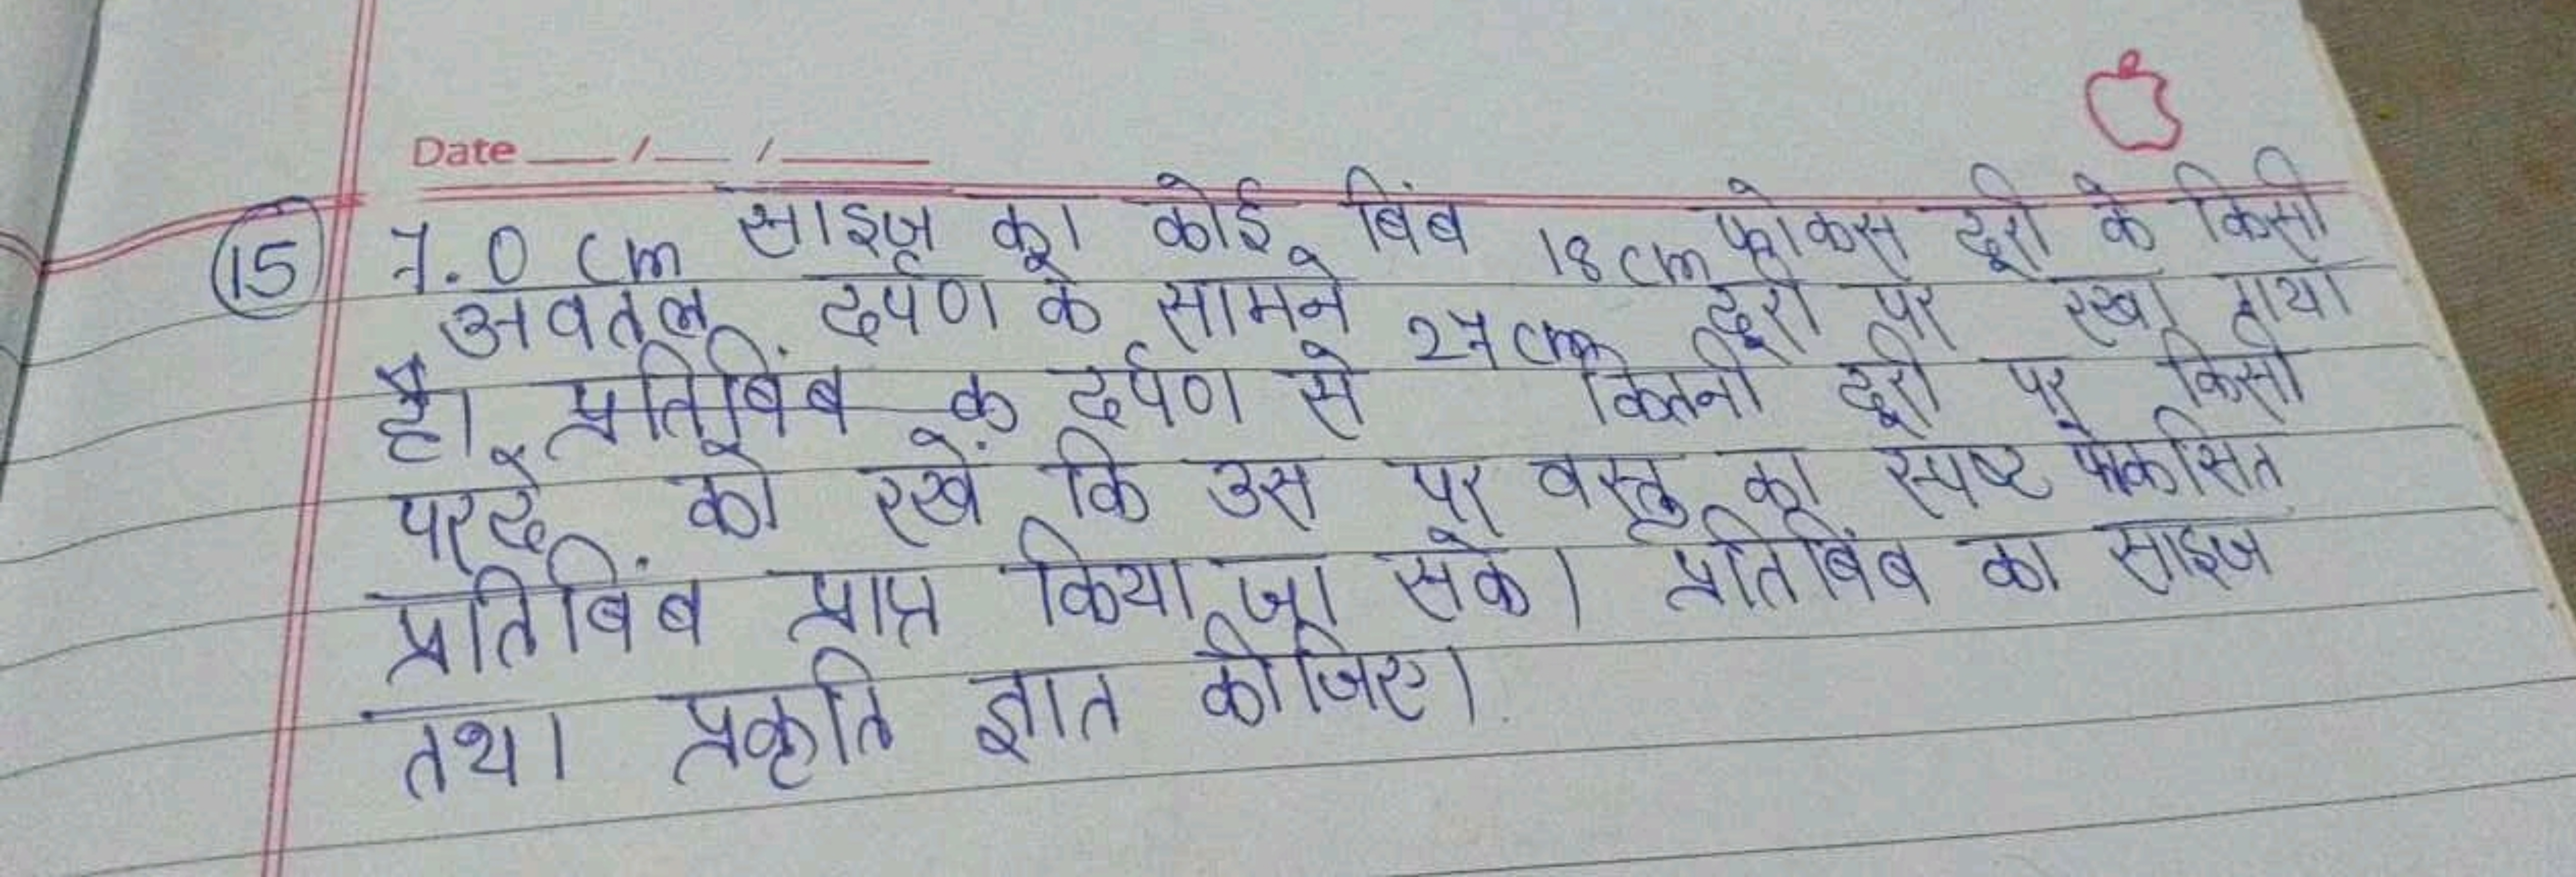 Date __/__/____
(15) 7.0 cm साइज का कोई बिंब 18 cm फोकस दूरी के किसी
अवतल दर्पण के सामने 27 cm दूरी पर रखा गया
है। प्रतिबिंब क दर्पण से कितनी दूरी पर किसी
परदे को रखें कि उस पर वस्तु का स्पष्ट फोकसित
प्रतिबिंब प्राप्त किया जा सके। प्रतिबिंब का साइज
तथा प्रकृति ज्ञात कीजिए।